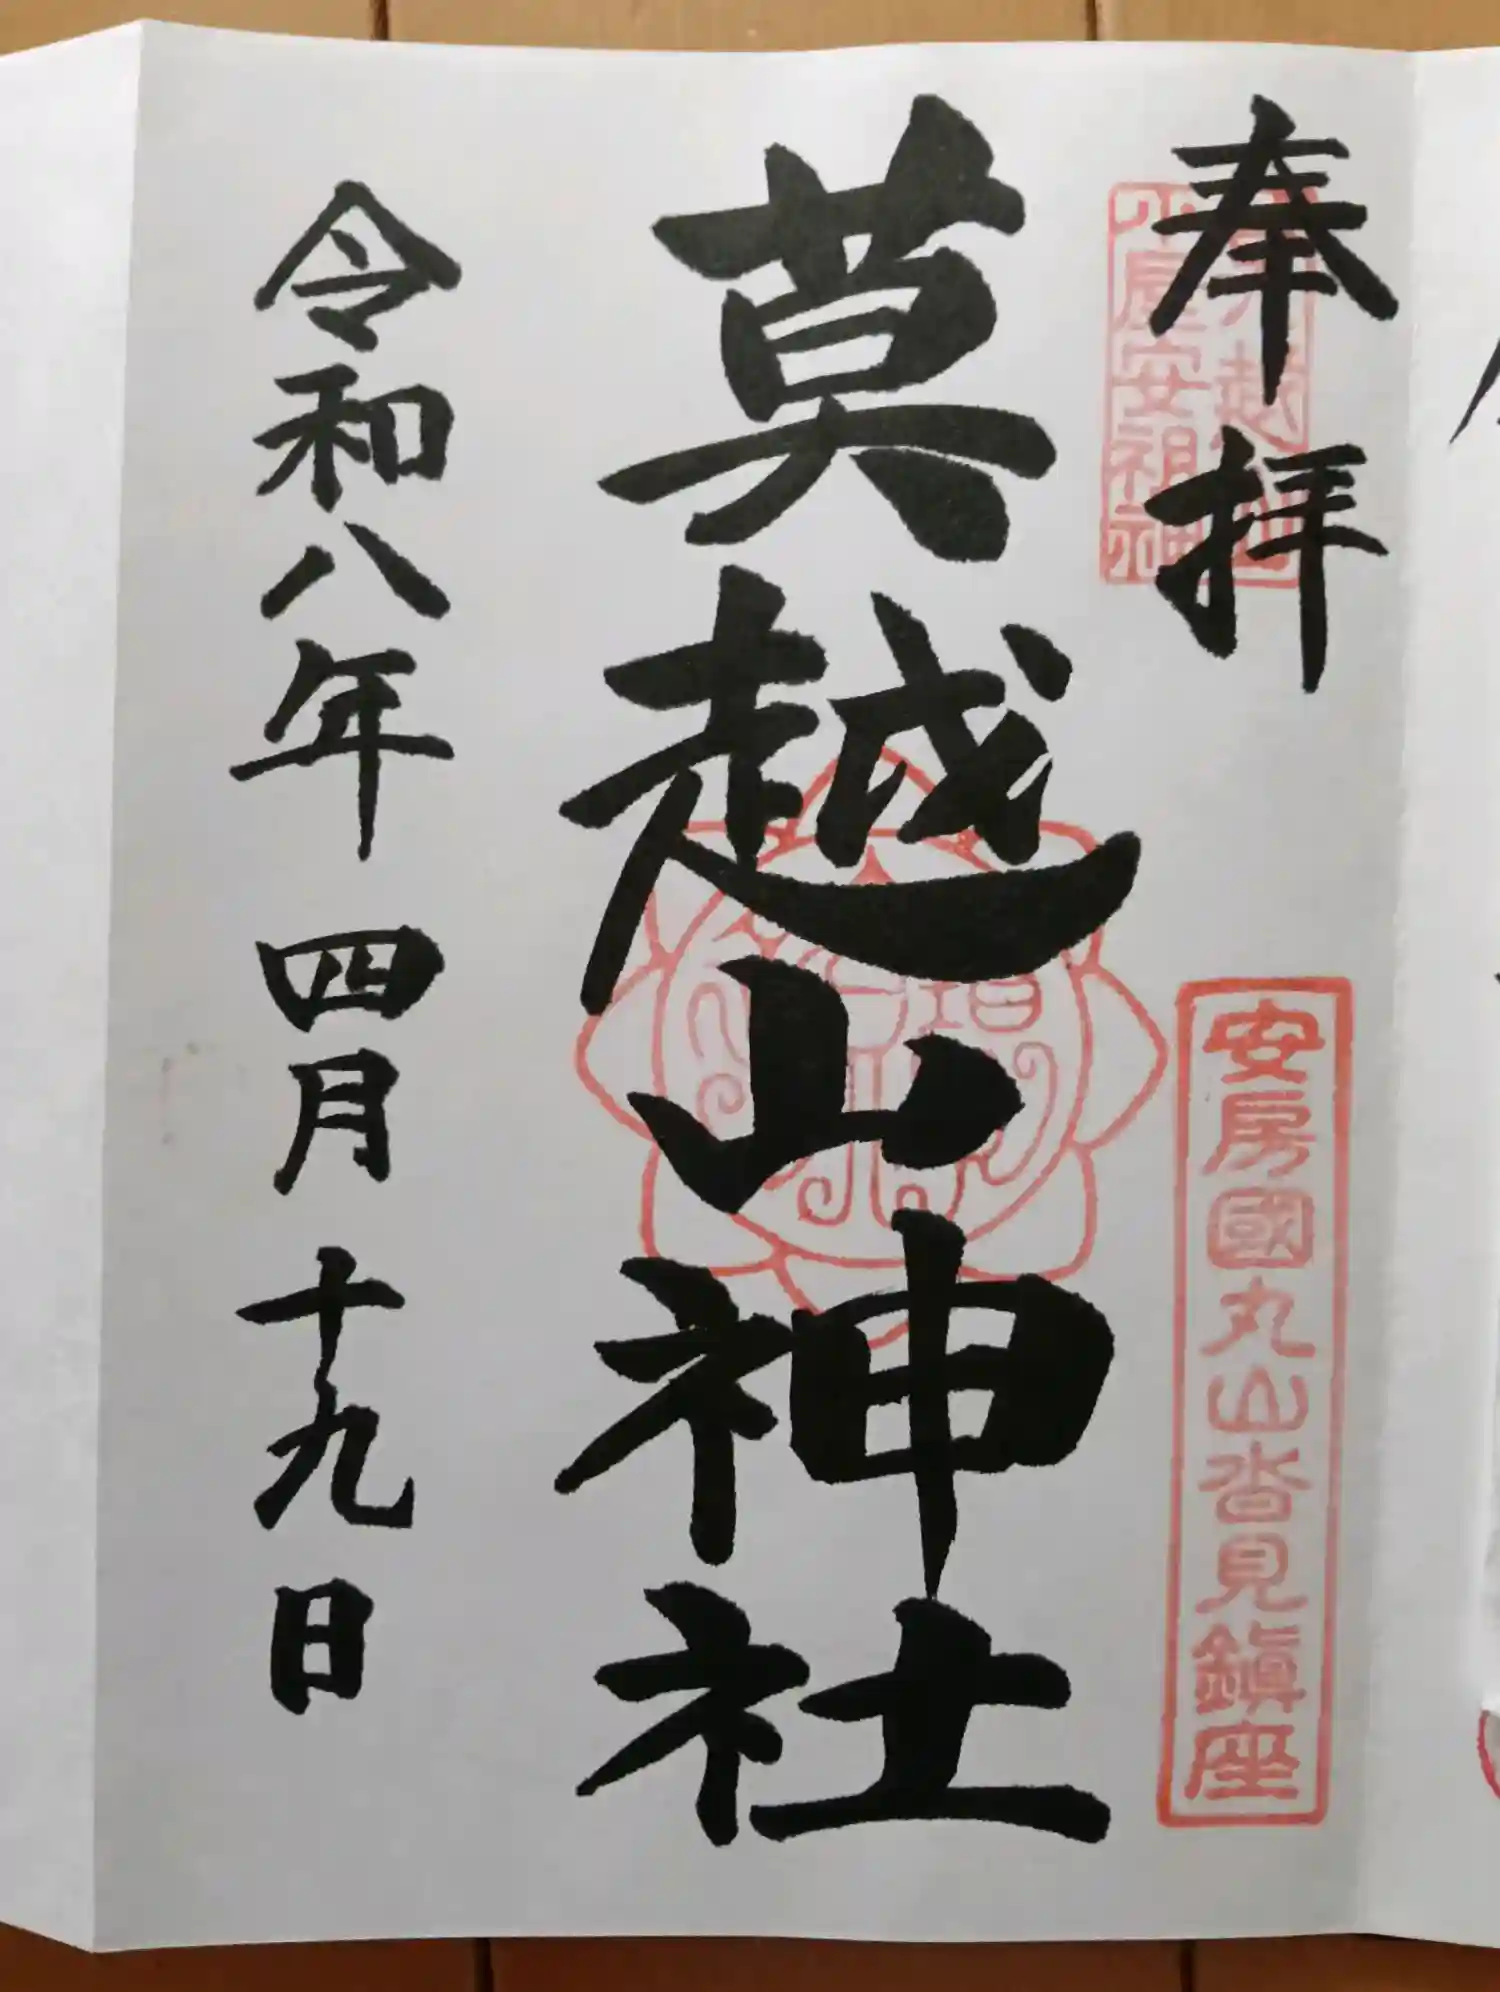 奉拝
安房國丸山沓見鎮座
莫越山神社
令和八年四月十九日